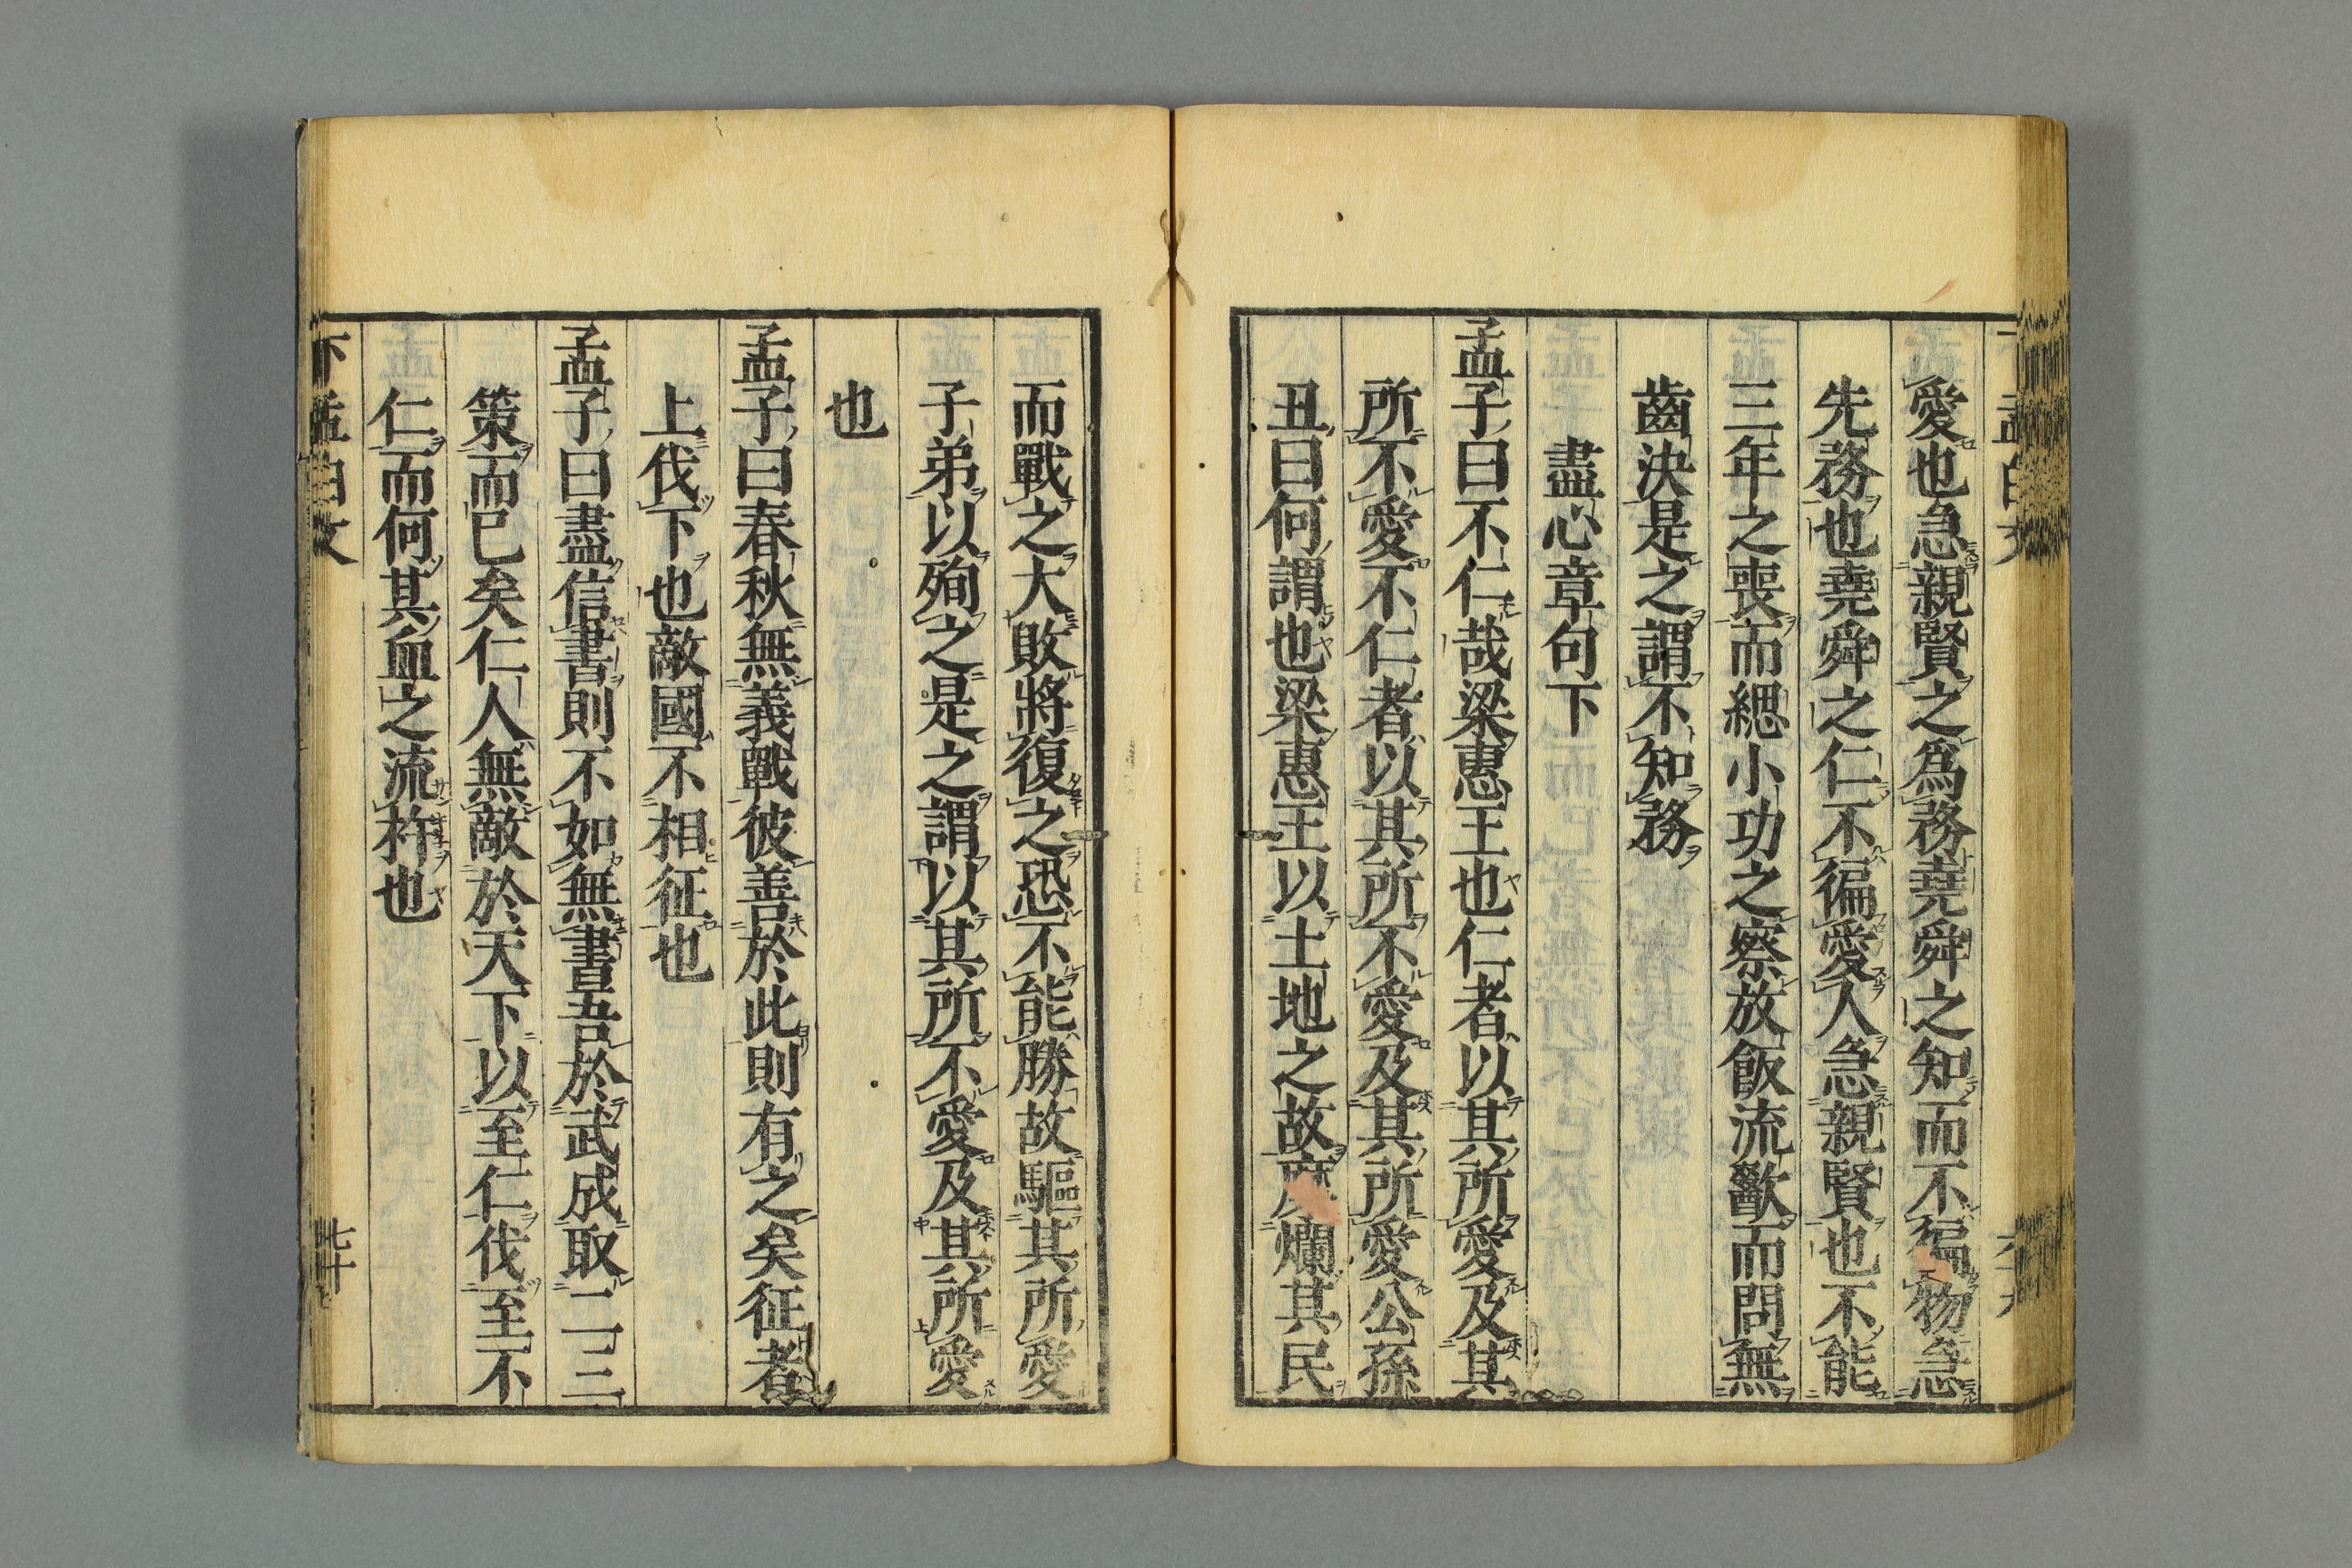 愛也急親賢之爲務堯舜之知而不徧物急
先務也堯舜之仁不徧愛人急親賢也不能
三年之喪而緦小功之察放飯流歠而問無
齒決是之謂不知務
盡心章句下
孟子曰不仁哉梁惠王也仁者以其所愛及其
所不愛不仁者以其所不愛及其所愛公孫
丑曰何謂也梁惠王以土地之故糜爛其民
而戰之大敗將復之恐不能勝故驅其所愛
子弟以殉之是之謂以其所不愛及其所愛
也
孟子曰春秋無義戰彼善於此則有之矣征者
上伐下也敵國不相征也
孟子曰盡信書則不如無書吾於武成取二三
策而已矣仁人無敵於天下以至仁伐至不
仁而何其血之流杵也
下孟白文 七十